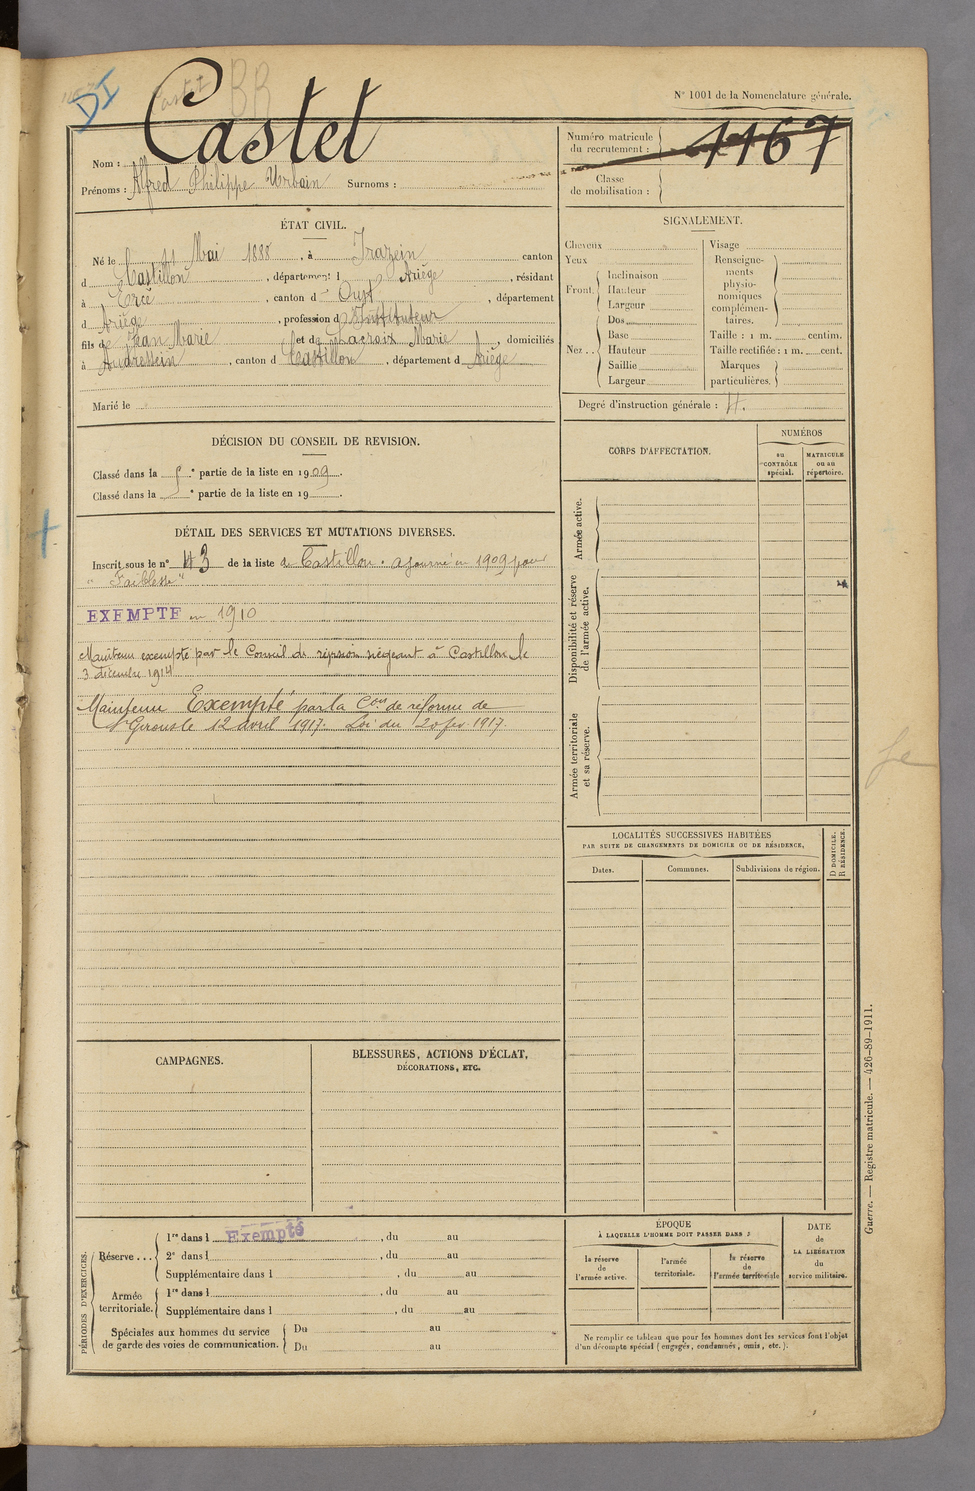 DI
Castet BR
N° 1001 de la Nomenclature générale.
Nom : Castet
Prénoms : Alfred Philippe Urbain Surnoms :
Numéro matricule du recrutement : 1167
Classe de mobilisation :
ÉTAT CIVIL.
Né le 11 Mai 1888, à Irazein canton
d Castillon, département d Ariège, résidant
à Ercé, canton d' Oust, département
d Ariège, profession d'Instituteur
fils de Jean Marie et de Lacroix Marie, domiciliés
à Audressein, canton d Castillon, département d Ariège
Marié le
SIGNALEMENT.
Cheveux
Yeux
Front. Inclinaison
Hauteur
Largeur
Nez .. Dos
Base
Hauteur
Saillie
Largeur
Visage
Renseigne-
ments
physio-
nomiques
complémen-
taires.
Taille : 1 m. centim.
Taille rectifiée : 1 m. cent.
Marques
particulières.
Degré d'instruction générale : 4.
DÉCISION DU CONSEIL DE REVISION.
Classé dans la 5e partie de la liste en 1909.
Classé dans la e partie de la liste en 19 .
DÉTAIL DES SERVICES ET MUTATIONS DIVERSES.
Inscrit sous le n° 43 de la liste de Castillon. ajourné en 1909 pour
" Faiblesse "
EXEMPTÉ en 1910
Maintenu exempté par le Conseil de révision siégeant à Castillon le
3 décembre 1914
Maintenu Exempté par la Con de réforme de
St Girons le 12 avril 1917. Loi du 20 fev. 1917.
CORPS D'AFFECTATION.
NUMÉROS
au
CONTRÔLE
spécial.
MATRICULE
ou au
répertoire.
Armée active.
Disponibilité et réserve
de l'armée active.
Armée territoriale
et sa réserve.
LOCALITÉS SUCCESSIVES HABITÉES
PAR SUITE DE CHANGEMENTS DE DOMICILE OU DE RÉSIDENCE.
D DOMICILE.
R RÉSIDENCE.
Dates.
Communes.
Subdivisions de région.
CAMPAGNES.
BLESSURES, ACTIONS D'ÉCLAT,
DÉCORATIONS, ETC.
PÉRIODES D'EXERCICES.
Réserve ... 1re dans l Exempté, du au
2e dans l , du au
Supplémentaire dans l , du au
Armée
territoriale. 1re dans l , du au
Supplémentaire dans l , du au
Spéciales aux hommes du service
de garde des voies de communication. Du au
Du au
ÉPOQUE
À LAQUELLE L'HOMME DOIT PASSER DANS :
la réserve
de
l'armée active.
l'armée
territoriale.
la réserve
de
l'armée territoriale
DATE
de
LA LIBÉRATION
du
service militaire.
Ne remplir ce tableau que pour les hommes dont les services font l'objet
d'un décompte spécial (engagés, condamnés, omis, etc.).
Guerre. — Registre matricule. — 426-89-1911.